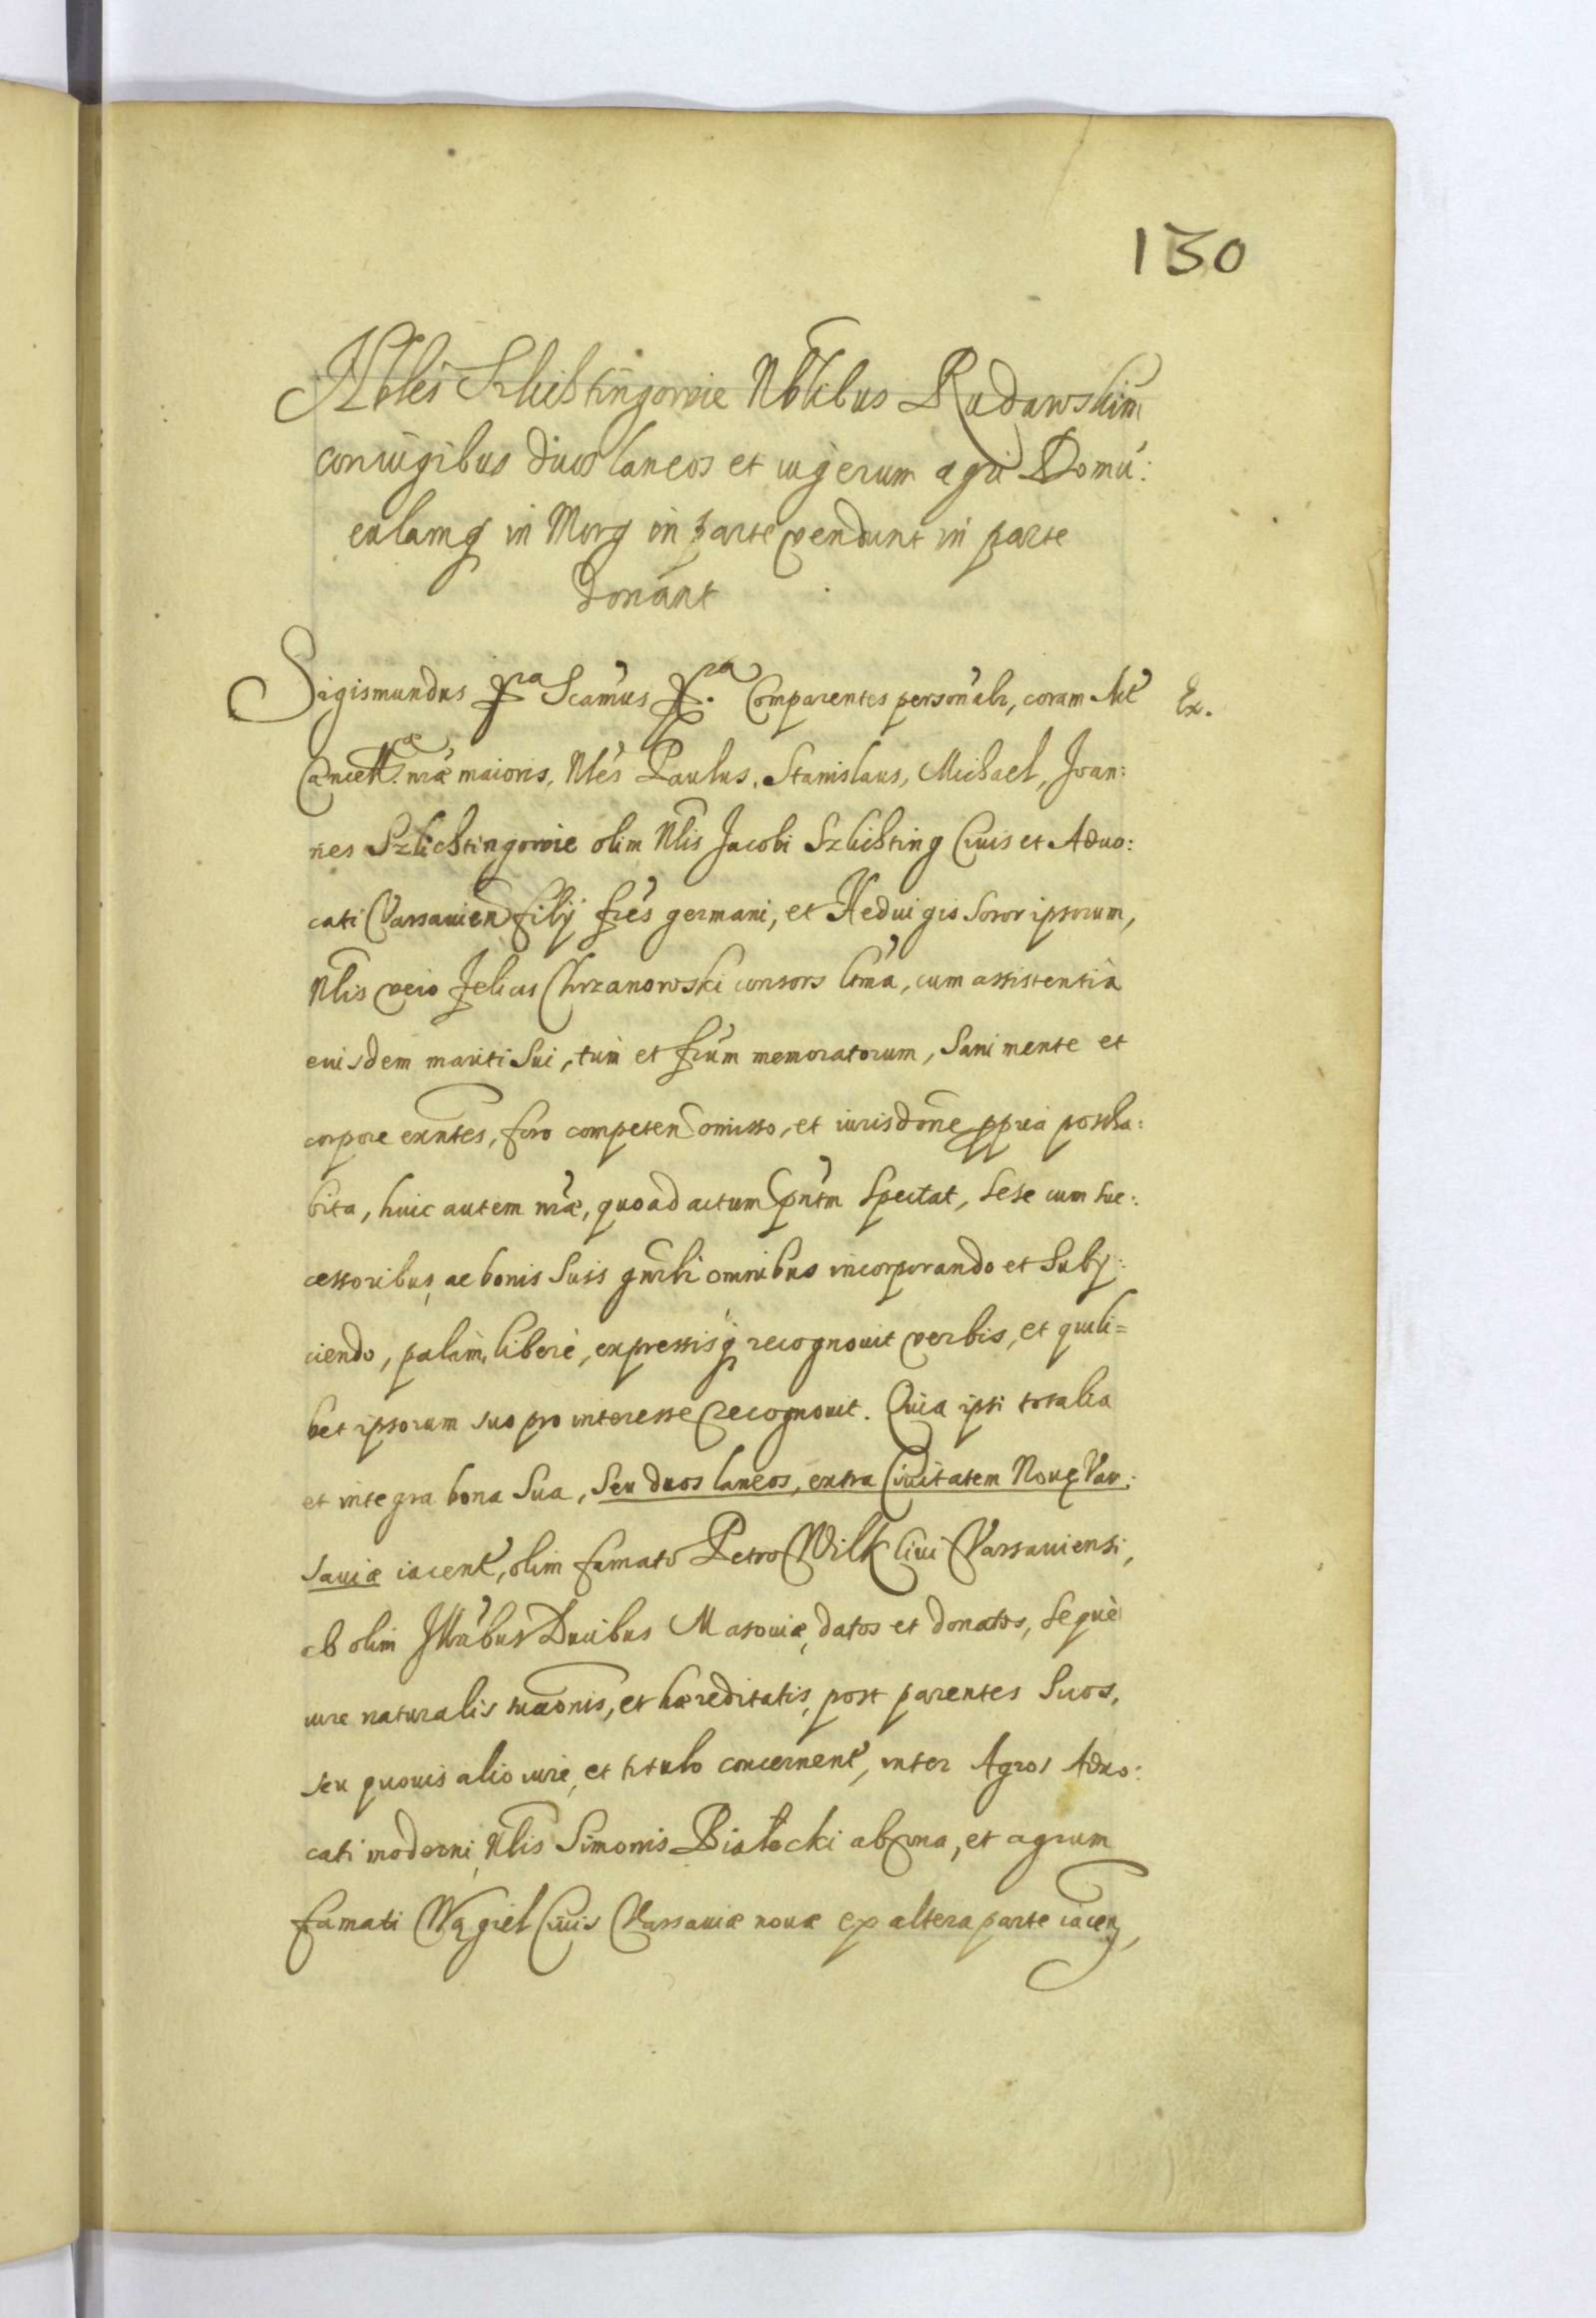 130
Nobles Szlichtingowie Nobilibus Rudawskim
coniugibus duos laneos et iugerum agri Domu:
culamq in Morg in parte vendunt in parte
donant
Sigismundus &ra Scamus &ra. Comparentes personalr, coram Act Ex.
Cancellæ nræ maioris, Nles Paulus, Stanislaus, Michael, Joan:
nes Szlichtingowie olim Nlis Jacobi Szlichting Ciuis et Aduo:
cati Varsauien filij fres germani, et Heduigis Soror ipsorum,
Nlis vero Felicis Chrzanowski consors ltma, cum assistentia
eiusdem mariti Sui, tum et frum memoratorum, Sani mente et
corpore exntes, foro competen omisso, et iurisdone ppria postha:
bita, huic autem nræ, quoad actum pntm Spectat, Sese cum suc:
cessoribus, ac bonis Suis gnrlr omnibus incorporando et Subij:
ciendo, palam, libere, expressisq recognouit verbis, et quili=
bet ipsorum suo pro interesse recognouit. Quia ipsi totalia
et integra bona Sua, Seu duos laneos, extra Ciuitatem Nouę Var:
sauiæ iacent, olim famato Petro Wilk Ciui Varsauiensi,
ab olim Illribus Ducibus Masouiæ, datos et donatos, Seque
iure naturalis suaonis, et hæreditatis, post parentes Suos,
seu quouis alio iure, et titulo concernent, inter Agros Aduo:
cati moderni, Nlis Simonis Białecki ab una, et agrum
famati Wągiel Ciuis Varsauiæ nouæ ex altera parte iacen,